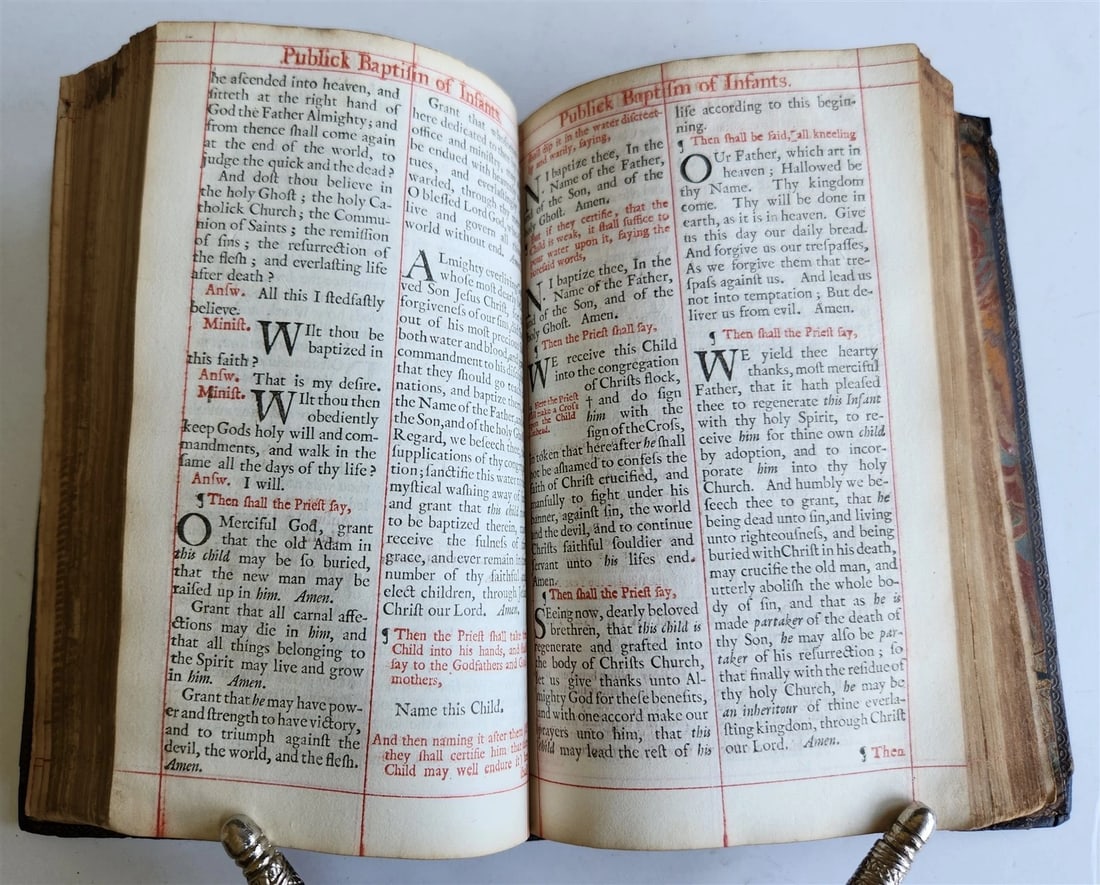 Publick Baptiſm of Infants.
he aſcended into heaven, and
ſitteth at the right hand of
God the Father Almighty; and
from thence ſhall come again
at the end of the world, to
judge the quick and the dead?
And doſt thou believe in
the holy Ghoſt; the holy Ca-
tholick Church; the Commu-
nion of Saints; the remiſſion
of ſins; the reſurrection of
the fleſh; and everlaſting life
after death?
Anſw. All this I ſtedfaſtly
believe.
Miniſt. WIlt thou be
baptized in
this faith?
Anſw. That is my deſire.
Miniſt. WIlt thou then
obediently
keep Gods holy will and com-
mandments, and walk in the
ſame all the days of thy life?
Anſw. I will.
¶ Then ſhall the Prieſt ſay,
O Merciful God, grant
that the old Adam in
this child may be ſo buried,
that the new man may be
raiſed up in him. Amen.
Grant that all carnal affe-
ctions may die in him, and
that all things belonging to
the Spirit may live and grow
in him. Amen.
Grant that he may have pow-
er and ſtrength to have victory,
and to triumph againſt the
devil, the world, and the fleſh.
Amen.
Grant that
here dedicated to
office and miniſtry
be endued with
tues, and everlaſt
warded, through thy
O bleſſed Lord God,
live and govern all
world without end.
ALmighty everliv
whoſe moſt dearly
ved Son Jeſus Chriſt, for
forgiveneſs of our ſins,
out of his moſt precious
both water and blood, and
commandment to his
that they ſhould go teach
nations, and baptize them
the Name of the Father, and
the Son, and of the holy
Regard, we beſeech thee,
ſupplications of thy congre
tion; ſanctifie this water to
myſtical waſhing away of
and grant that this child
to be baptized therein, may
receive the fulneſs of
grace, and ever remain in
number of thy faithful
elect children, through
Chriſt our Lord. Amen.
¶ Then the Prieſt ſhall take
Child into his hands, and
ſay to the Godfathers and God
mothers,
Name this Child.
And then naming it after them
they ſhall certifie him that
Child may well endure it)
Publick Baptiſm of Infants.
ſhall dip it in the water diſcreet-
and warily, ſaying,
N. I baptize thee, In the
Name of the Father,
and of the Son, and of the
holy Ghoſt. Amen.
But if they certifie, that the
Child is weak, it ſhall ſuffice to
pour water upon it, ſaying the
foreſaid words,
N. I baptize thee, In the
Name of the Father,
and of the Son, and of the
holy Ghoſt. Amen.
¶ Then the Prieſt ſhall ſay,
WE receive this Child
into the congregation
of Chriſts flock,
† and do ſign
him with the
ſign of the Croſs,
Here the Prieſt
ſhall make a Croſs
upon the Child
forehead.
in token that hereafter he ſhall
not be aſhamed to confeſs the
faith of Chriſt crucified, and
manfully to fight under his
banner, againſt ſin, the world
and the devil, and to continue
Chriſts faithful ſouldier and
ſervant unto his lifes end.
Amen.
¶ Then ſhall the Prieſt ſay,
SEeing now, dearly beloved
brethren, that this child is
regenerate and grafted into
the body of Chriſts Church,
let us give thanks unto Al-
mighty God for theſe benefits,
and with one accord make our
prayers unto him, that this
child may lead the reſt of his
life according to this begin-
ning.
¶ Then ſhall be ſaid, all kneeling
OUr Father, which art in
heaven; Hallowed be
thy Name. Thy kingdom
come. Thy will be done in
earth, as it is in heaven. Give
us this day our daily bread.
And forgive us our treſpaſſes,
As we forgive them that treſ-
paſs againſt us. And lead us
not into temptation; But de-
liver us from evil. Amen.
¶ Then ſhall the Prieſt ſay,
WE yield thee hearty
thanks, moſt merciful
Father, that it hath pleaſed
thee to regenerate this Infant
with thy holy Spirit, to re-
ceive him for thine own child
by adoption, and to incor-
porate him into thy holy
Church. And humbly we be-
ſeech thee to grant, that he
being dead unto ſin, and living
unto righteouſneſs, and being
buried with Chriſt in his death,
may crucifie the old man, and
utterly aboliſh the whole bo-
dy of ſin, and that as he is
made partaker of the death of
thy Son, he may alſo be par-
taker of his reſurrection; ſo
that finally with the reſidue of
thy holy Church, he may be
an inheritour of thine everla-
ſting kingdom, through Chriſt
our Lord. Amen.
¶ Then